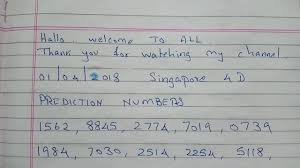 Hallo . welcome TO ALL
Thank you for watching my channel
01/04/2018 Singapore 4D
PREDICTION NUMBERS
1562, 8845, 2774, 7019, 0739
1984, 7030, 2514, 2254, 5118,